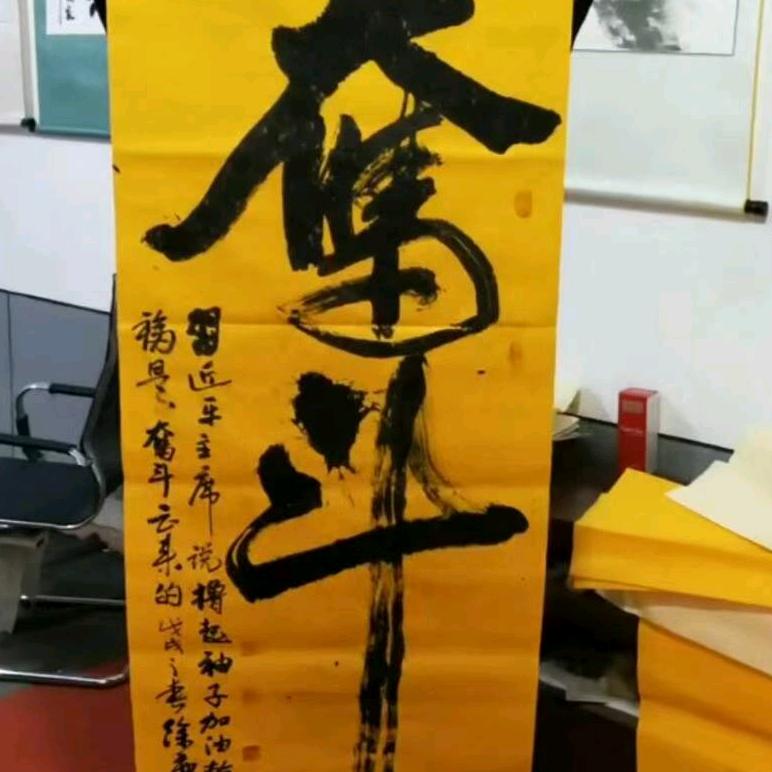 奮斗
習近平主席说撸起袖子加油
福是奋斗出来的戊戌之春徐